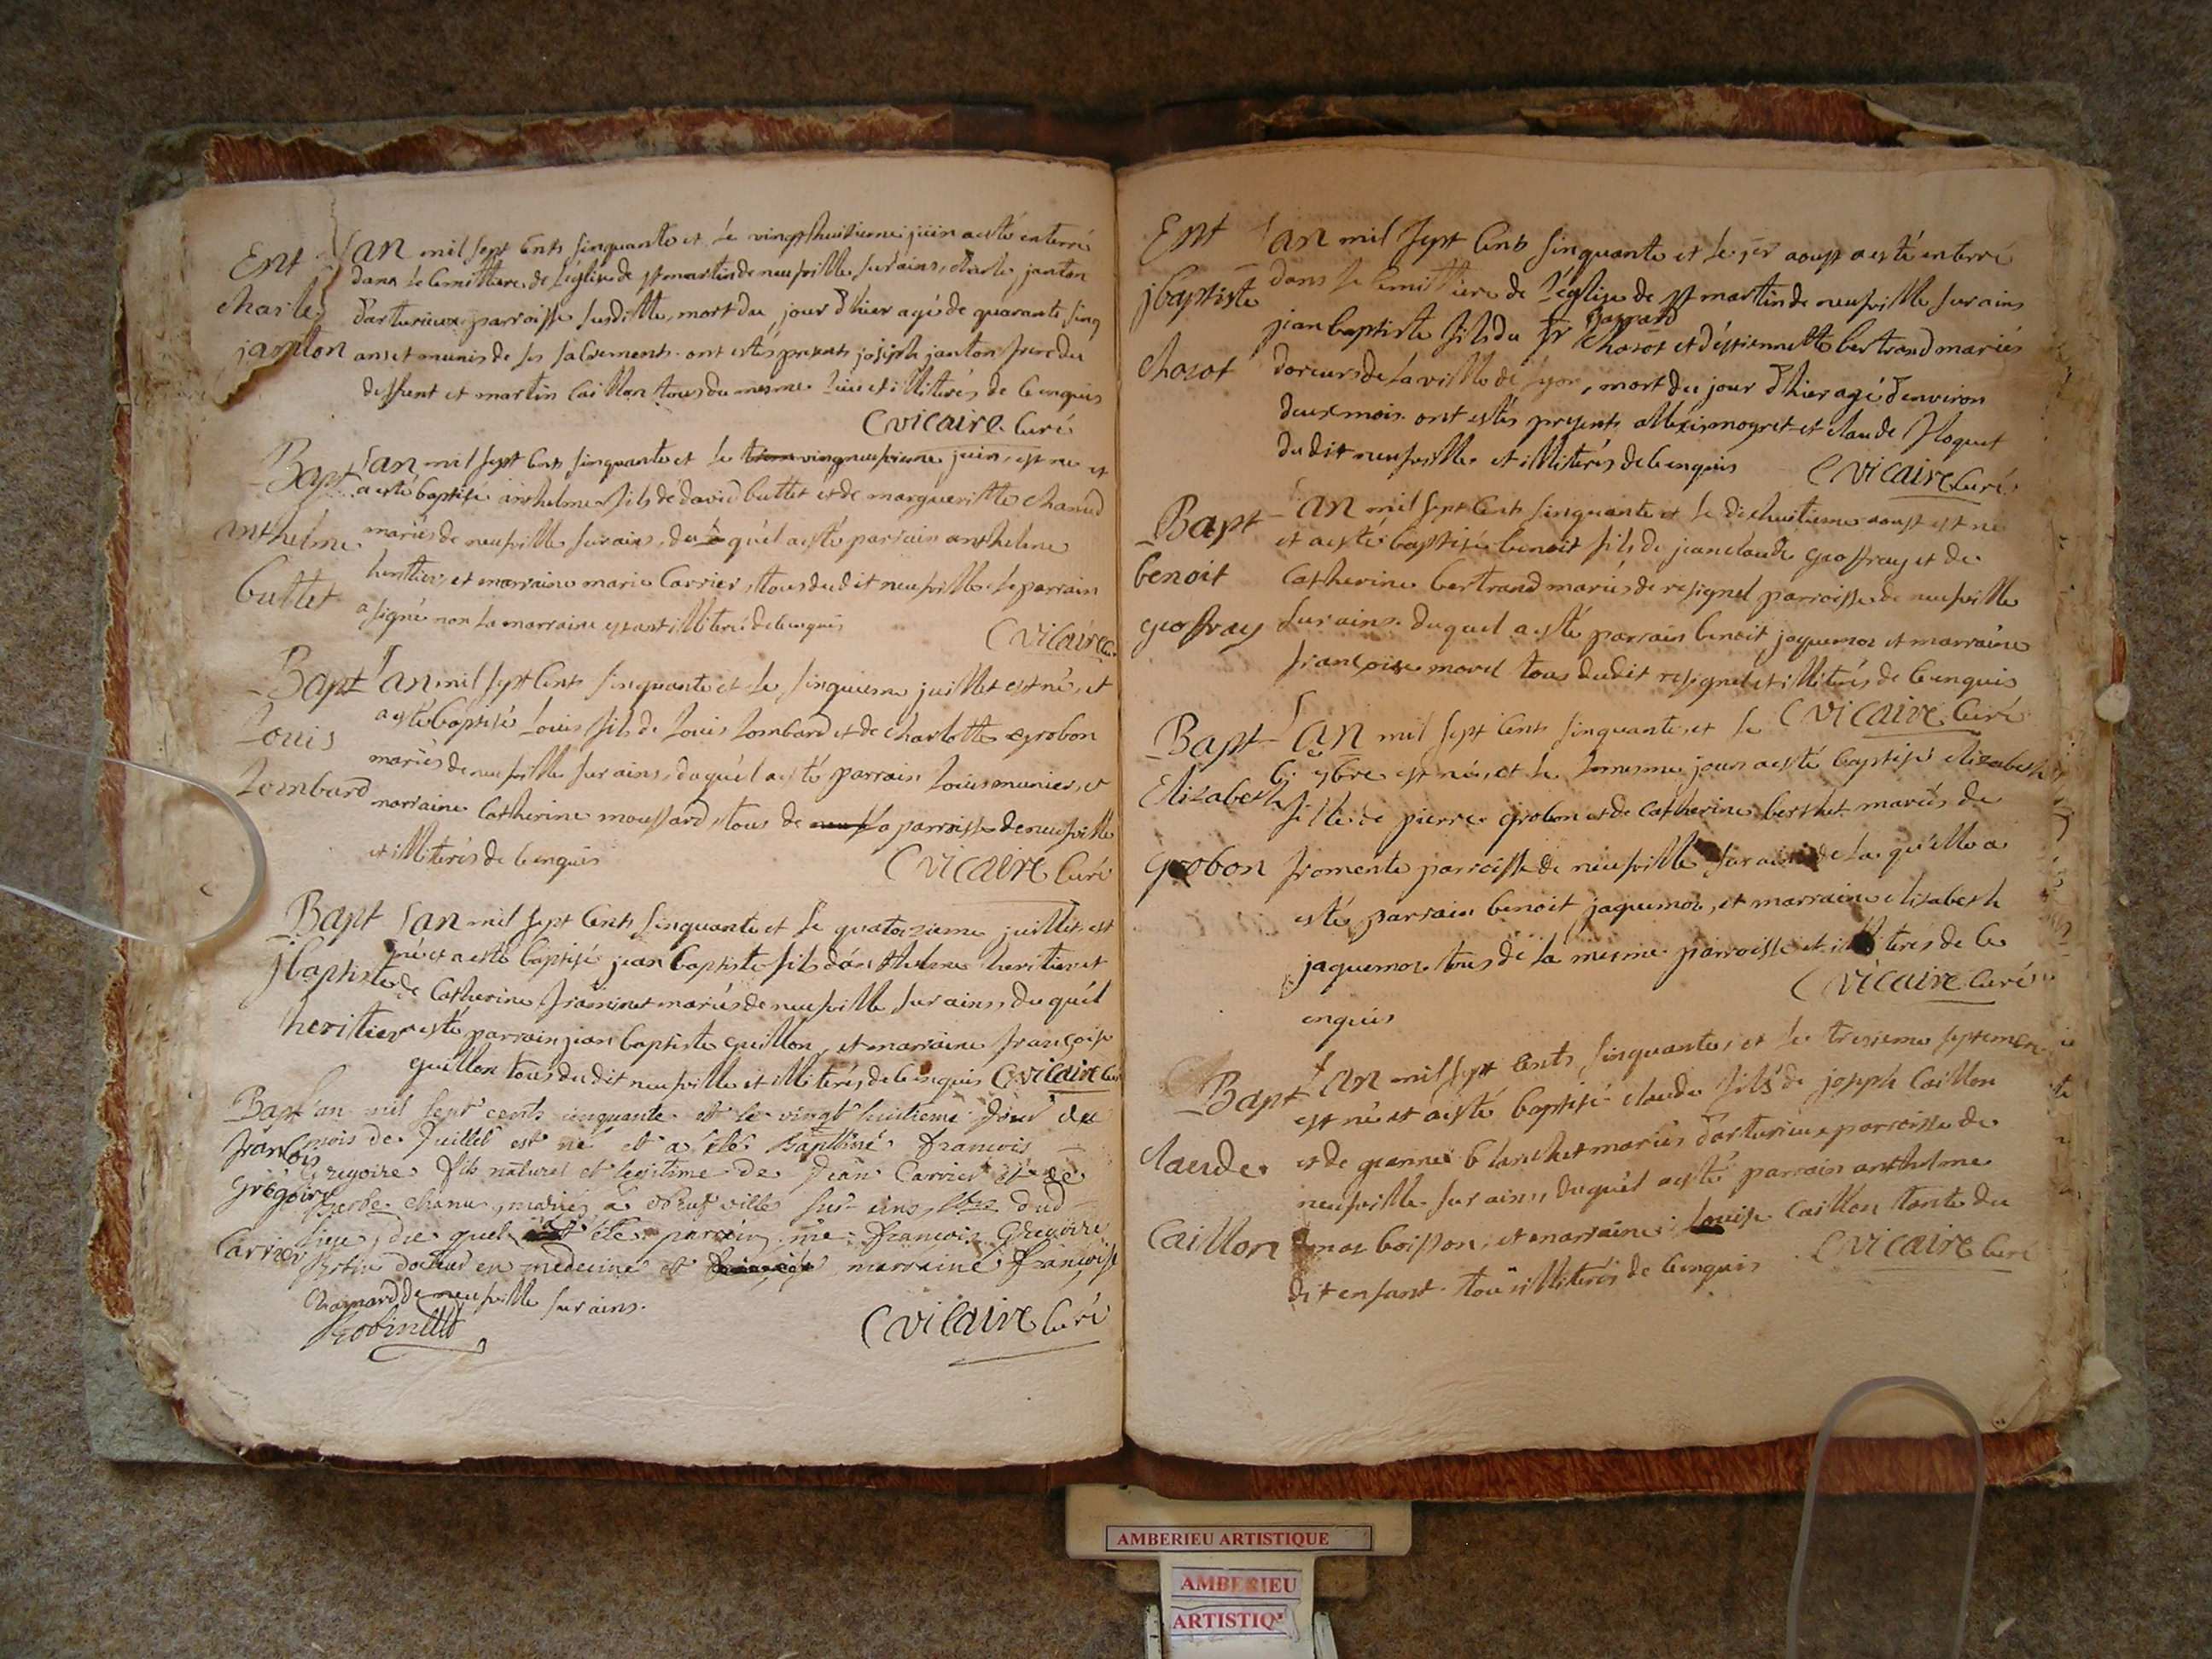 Ent
charles
janton
L'an mil sept cents sinquante et le vingthuitieme juin a esté enterré
dans le cemittiere de l'église de st martin de neufville sur ains, charles janton
d'arturieux parroisse susditte, mort du jour d'hier agé de quarante sinq
ans et munis de ses sacrements. ont estés presents joseph janton frere du
deffunt et martin caillon tous du mesme lieu et illiterés de ce enquis
C vicaire Curé
Bapt
anthelme
buttet
L'an mil sept cents sinquante et le vingneufvieme juin, est né et
a esté baptisé anthelme fils de david buttet et de margueritte chanud
mariés de neufville sur ains, du quel a esté parrain anthelme
heritier, et marraine marie Carrier, tous dudit neufville. le parrain
a signé non la marraine estant illiteré de ce enquis
C vicaire Cu
Bapt
Louis
Lombard
L'an mil sept cents sinquante et le sinquieme juillet est né, et
a esté baptisé Louis fils de Louis Lombard et de charlotte grobon
mariés de neufville sur ains, duquel a esté parrain Louis munier, et
marraine Catherine moussard, tous de la parroisse de neufville
et illiterés de ce enquis
C vicaire Curé
Bapt
jbaptiste
heritier
L'an mil sept cents sinquante et le quatorzieme juillet est
né et a esté baptisé jean baptiste fils d'anthelme heritier et
de Catherine framinet mariés de neufville sur ains, du quel
a esté parrain jean baptiste guillon, et marraine françoise
guillon tous dudit neufville et illiterés de ce enquis C vicaire Cu
Bapt
françois
grégoire
Carrier
L'an mil sept cents cinquante et le vingt huitieme jour du
mois de Juillet est né et a été Baptisé francois
Gregoire fils naturel et legitime de Jean Carrier et de
chanu, mariés à Neuf ville sur ains, dud
Lieu, du quel a été parrain me francois Gregoire
docteur en medecine et marraine françoise
de neufville sur ains.
Robinet
C vicaire Curé
Ent
jbaptiste
chozot
L'an mil sept cents sinquante et le 1er aoust a esté enterré
dans le cemittiere de l'église de st martin de neufville sur ains
jean baptiste fils du sr chozot et d'estiennette bertrand mariés
doreurs de la ville de Lyon, mort du jour d'hier agé d'environ
deux mois. ont estés presents alexis mogret et claude Floquet
dudit neufville et illiterés de ce enquis C vicaire Curé
Bapt
benoit
geoffray
L'an mil sept cents sinquante et le dixhuitieme aoust est né
et a esté baptisé benoit fils de jean claude geoffray et de
Catherine bertrand mariés de resignel parroisse de neufville
sur ains. duquel a esté parrain benoit jaquemoz et marraine
françoise morel tous dudit resignel et illiterés de ce enquis
C vicaire Curé
Bapt
Elizabeth
grobon
L'an mil sept cents sinquante, et le
6e 7bre est née, et le mesme jour a esté baptisé elizabeth
fille de pierre grobon et de Catherine berthet mariés de
fromente parroisse de neufville sur ains de la quelle a
estés parrain benoit jaquemoz, et marraine elizabeth
jaquemoz tous de la mesme parroisse et illiterés de ce
enquis
C vicaire Curé
Bapt
claude
Caillon
L'an mil sept cents sinquante, et le tresieme septembre
est né et a esté baptisé claude fils de joseph Caillon
et de jeanne blanchet mariés d'arturieux parroisse de
neufville sur ains, duquel a esté parrain anthelme
boisson, et marraine Louise Caillon tante du
dit enfant tous illiterés de ce enquis. C vicaire Curé
AMBERIEU ARTISTIQUE
AMBERIEU
ARTISTIQ